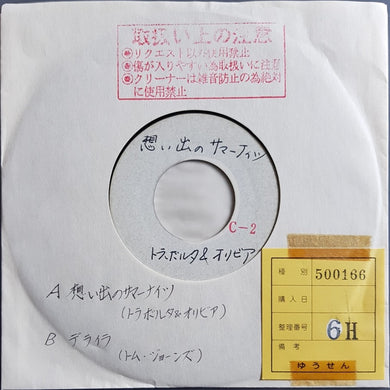 取扱い上の注意
リクエスト以外使用禁止
傷が入りやすい為取扱いに注意
クリーナーは雑音防止の為絶対
に使用禁止
想い出のサマーナイツ
C-2
トラボルタ&オリビア
A 想い出のサマーナイツ
(トラボルタ&オリビア)
B デライラ
(トム・ジョーンズ)
種別 500166
購入日
整理番号 6H
備考
ゆうせん